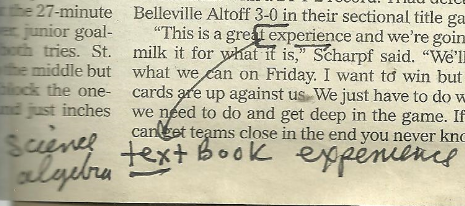 the 27-minute
er, junior goal-
both tries. St.
he middle but
block the one-
nd just inches
Belleville Altoff 3-0 in their sectional title ga
"This is a great experience and we're goin
milk it for what it is," Scharpf said. "We'll
what we can on Friday. I want to win but
cards are up against us. We just have to do w
we need to do and get deep in the game. If
can get teams close in the end you never kno
science
algebra
text Book experience